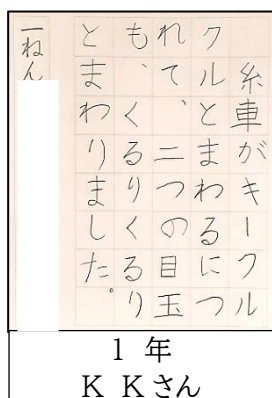 糸車がキークル
クルとまわるにつ
れて、二つの目玉
も、くるりくるり
とまわりました。
一ねん
1 年
K Kさん